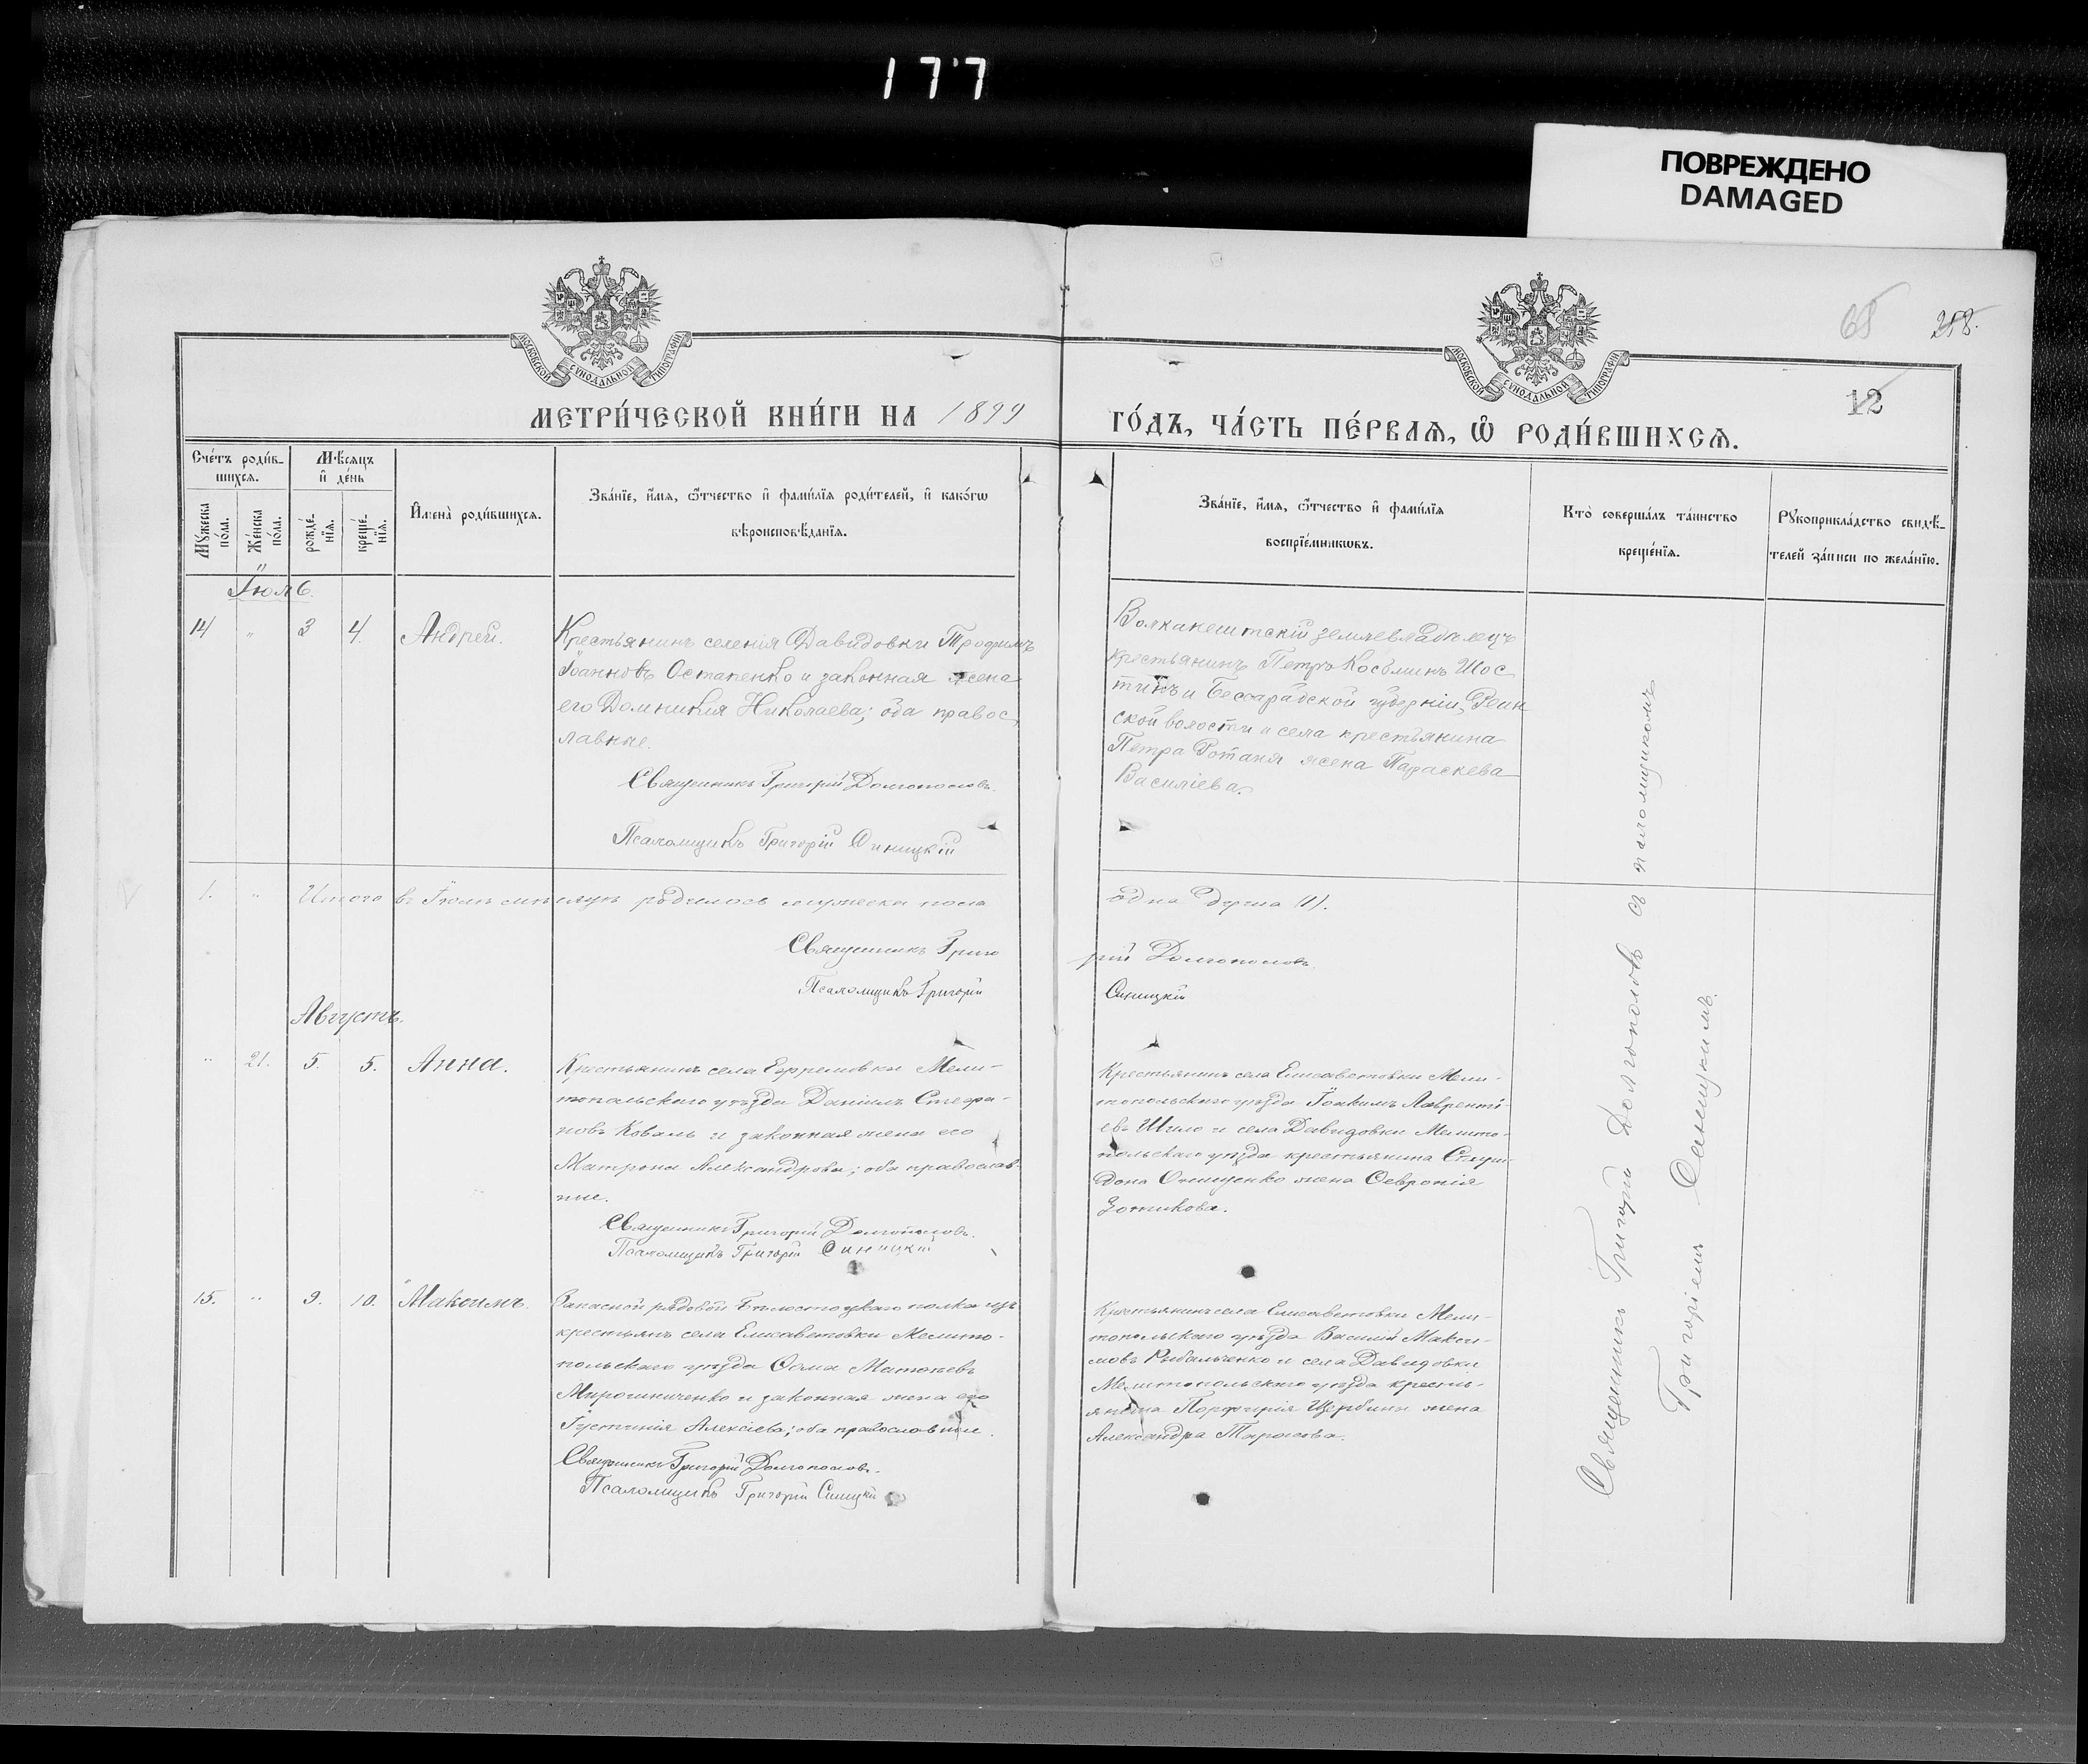 177
ПОВРЕЖДЕНО
DAMAGED
МОСКОВСКОЙ СУНОДАЛЬНОЙ ТИПОГРАФІИ
МОСКОВСКОЙ СУНОДАЛЬНОЙ ТИПОГРАФІИ
65 288.
12
МЕТРИ́ЧЕСКОЙ КНИ́ГИ НА 1899
ГО́ДЪ, ЧА́СТЬ ПЕ́РВАЯ, Ѽ РОДИ́ВШИХСЯ.
Сче́тъ роди́в-
шихся.
Мѣсяцъ
и҆ де́нь
Му́жеска
по́ла.
Же́нска
по́ла.
рожде́-
нїя.
креще́-
нїя.
И҆мена̀ роди́вшихся.
Зва́нїе, и҆́мя, ѻ҆́тчество и҆ фами́лїя роди́телей, и҆ како́гѡ
вѣроисповѣ́данїя.
Зва́нїе, и҆́мя, ѻ҆́тчество и҆ фами́лїя
воспрїе́мникѡвъ.
Кто̀ соверша́лъ та́инство
креще́нїя.
Рꙋкоприкла́дство свидѣ́-
телей за́писи по жела́нїю.
Іюль.
14 " 3 4. Андрей.
Крестьянинъ селенія Давидовки Трофимъ
Іоанновъ Остапенко и законная жена
его Домникія Николаева; оба правос
лавные.
Священникъ Григорій Долгополовъ.
Псаломщикъ Григорій Синицкій
Волканештскій землевладѣлецъ
крестьянинъ Петръ Косьминъ Шос
тикъ и Бессарабской губерніи,
ской волости и села крестьянина
Петра Ротаня жена Параскева
Василіева.
1. " Итого въ Іюлѣ мѣсяцѣ родилось мужеска пола одна душа (1).
Священникъ Григорій Долгополовъ
Псаломщикъ Григорій Синицкій
Августъ.
" 21. 5. 5. Анна.
Крестьянинъ села Ефремовки Мели-
топольскаго уѣзда Даніилъ Стефа-
новъ Коваль и законная жена его
Матрона Александрова; оба православ-
ные.
Священникъ Григорій Долгополовъ.
Псаломщикъ Григорій Синицкій
Крестьянинъ села Елисаветовки Мели-
топольскаго уѣзда Іоакимъ Лавренті-
евъ Шило и села Давидовки Мелито-
польскаго уѣзда крестьянина Спири-
дона Онищенко жена Февронія
Зотикова.
15. " 9. 10. Максимъ.
Запасной рядовой Бѣлостоцкаго полка изъ
крестьянъ села Елисаветовки Мелито-
польскаго уѣзда Ѳома Матѳеевъ
Мирошниченко и законная жена его
Іустинія Алексіева; оба православные.
Священникъ Григорій Долгополовъ.
Псаломщикъ Григорій Синицкій
Крестьянинъ села Елисаветовки Мели-
топольскаго уѣзда Василій Макси-
мовъ Рыбальченко и села Давидовки
Мелитопольскаго уѣзда кресть-
янина Порфирія Щербины жена
Александра Тарасова.
Священникъ Григорій Долгополовъ съ псаломщикомъ
Григоріемъ Синицкимъ.